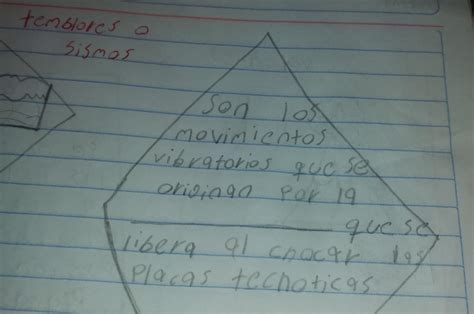 temblores o
sismos
son los
movimientos
vibratorios que se
originan por la
que se
libera al chocar las
placas tecnoticas